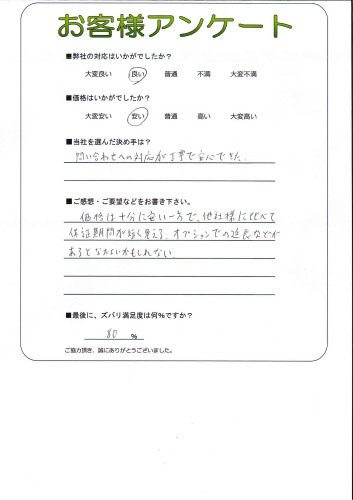 お客様アンケート
■弊社の対応はいかがでしたか？
大変良い 良い 普通 不満 大変不満
■価格はいかがでしたか？
大変安い 安い 普通 高い 大変高い
■当社を選んだ決め手は？
問い合わせへの対応が丁寧で安心できた。
■ご感想・ご要望などをお書き下さい。
価格は十分に安い一方で、他社様に比べて
保証期間が短く見える。オプションでの延長などが
あるとなおよいかもしれない
■最後に、ズバリ満足度は何%ですか？
80 %
ご協力頂き、誠にありがとうございました。